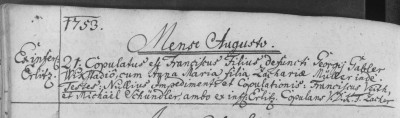 1753.
Mense Augusto.
Ex infer: 21. Copulatus est Franciscus Filius defuncti Georgij Tabler
Erlitz. cum Anna Maria filia Zachariæ Müller inde
Testes: Nullius Impedimenti et Copulationis: Franciscus
et Michäel Schindler, ambo ex inf: Erlitz. Copulans